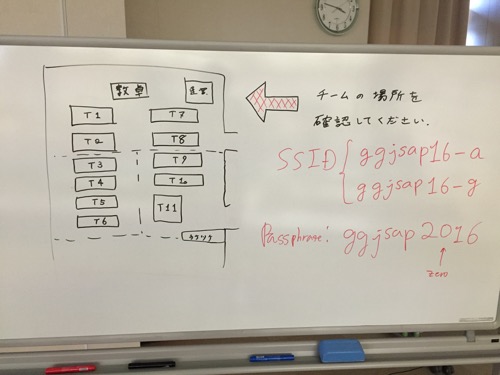 教卓
運営
T1
T7
T2
T8
T3
T9
T4
T10
T5
T11
T6
チームの場所を
確認してください.
SSID
ggjsap16-a
ggjsap16-g
Passphrase:
ggjsap2016
zero